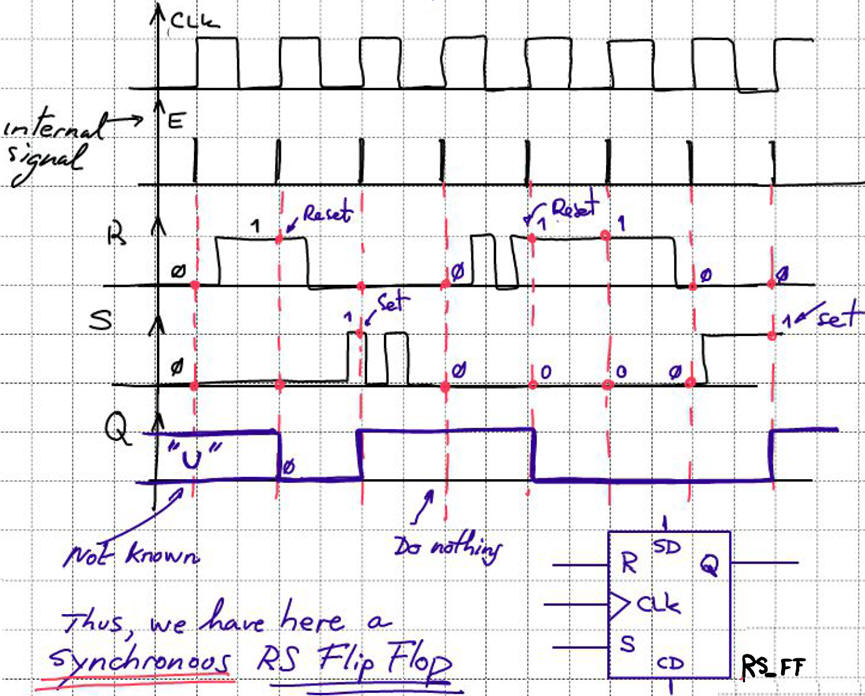 CLK
internal signal → E
R
Ø 1 Reset Ø Reset 1 1 Ø Ø
S
Ø 1 Set Ø 0 0 Ø 1 set
Q
"U" Ø
Not known
Do nothing
SD
R Q
CLK
S
CD
RS_FF
Thus, we have here a
synchronous RS Flip Flop